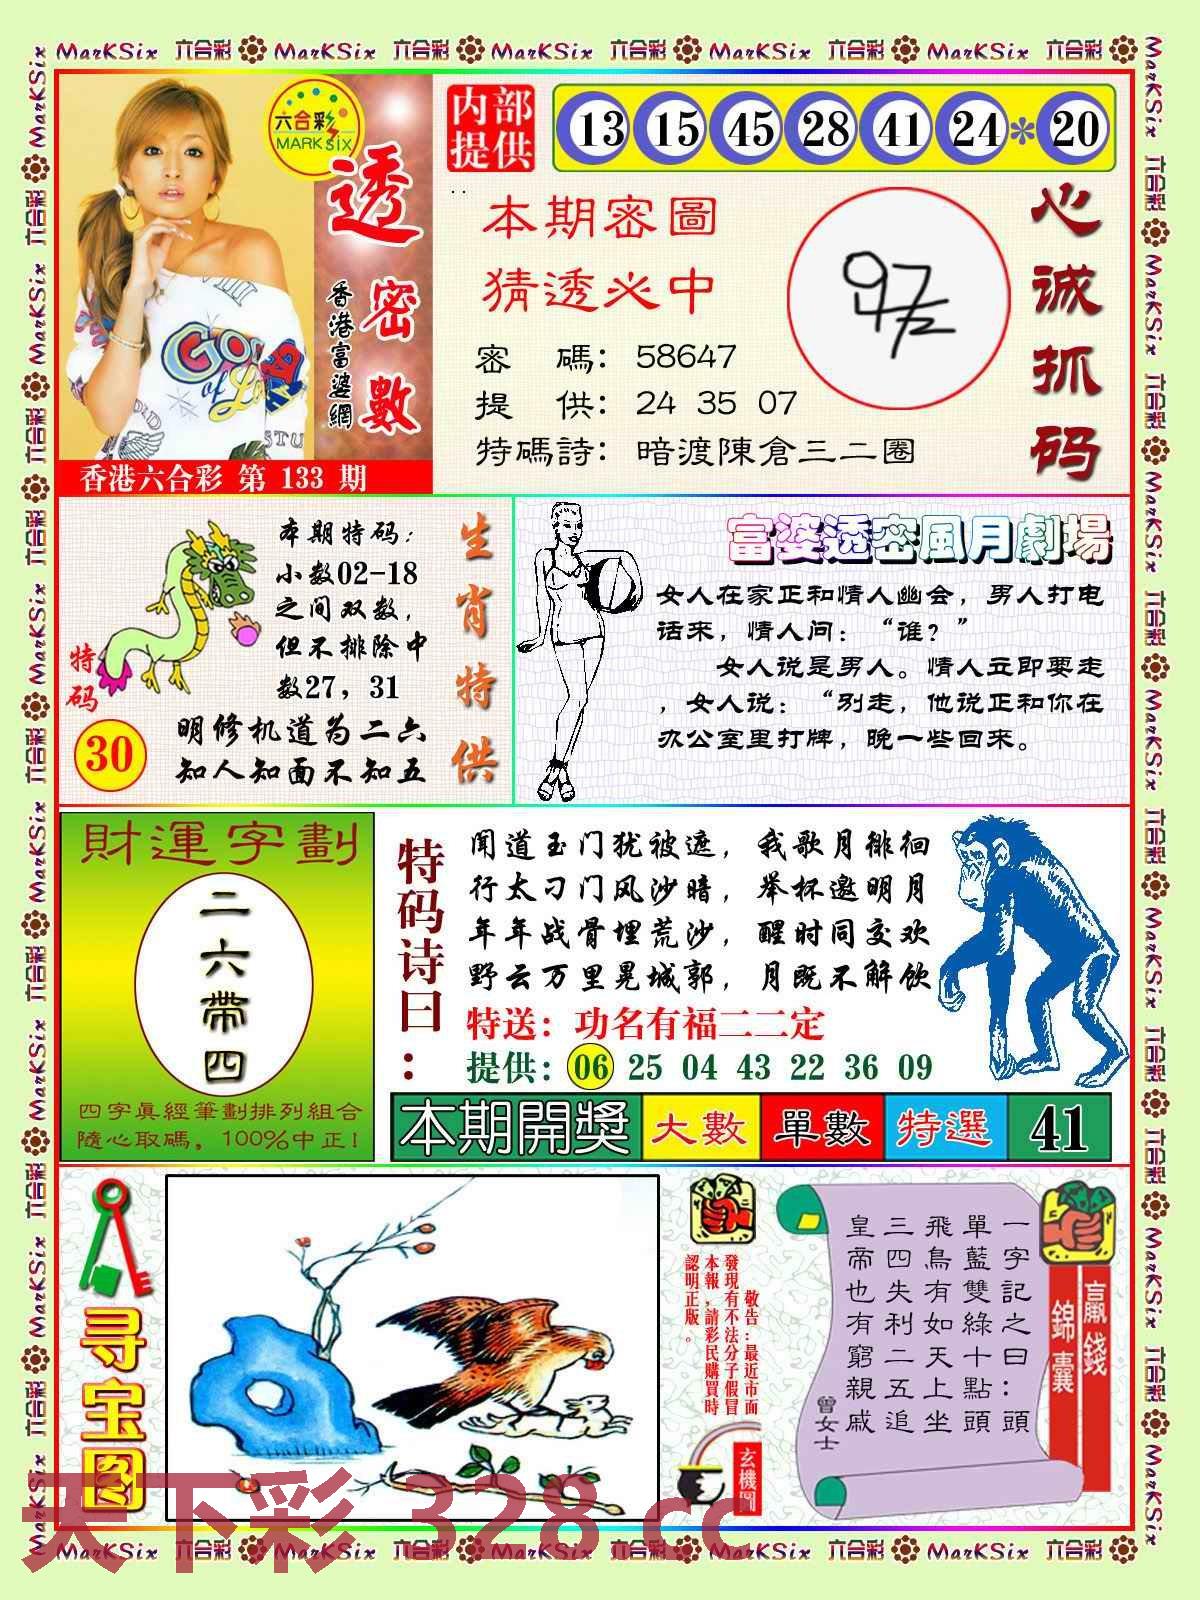 MarKSix 六合彩 MarKSix 六合彩 MarKSix 六合彩 MarKSix 六合彩 MarKSix 六合彩
六合彩
MARK SIX
透密數
香港富婆網
香港六合彩 第 133 期
内部
提供
13 15 45 28 41 24 * 20
本期密圖
猜透必中
密 碼: 58647
提 供: 24 35 07
特碼詩: 暗渡陳倉三二圈
心诚抓码
特码
30
本期特码:
小数02-18
之间双数,
但不排除中
数27,31
明修机道为二六
知人知面不知五
生肖特供
富婆透密風月劇場
女人在家正和情人幽会,男人打电
话来,情人问:“谁?”
女人说是男人。情人立即要走
,女人说:“别走,他说正和你在
办公室里打牌,晚一些回来。
財運字劃
二六帶四
四字眞經筆劃排列組合
隨心取碼,100%中正!
特码诗曰:
闻道玉门犹被遮,我歌月徘徊
行太刁门风沙暗,举杯邀明月
年年战骨埋荒沙,醒时同交欢
野云万里晃城郭,月既不解饮
特送:功名有福二二定
提供:06 25 04 43 22 36 09
本期開獎 大數 單數 特選 41
寻宝图
敬告:最近市面
發現有不法分子假冒
本報,請彩民購買時
認明正版。
玄機圖
一字記之曰:頭
單藍雙綠十點頭
飛鳥有如天上坐
三四失利二五追
皇帝也有窮親戚
曾女士
贏錢
錦囊
天下彩 328.cc
MarKSix 六合彩 MarKSix 六合彩 MarKSix 六合彩 MarKSix 六合彩 MarKSix 六合彩